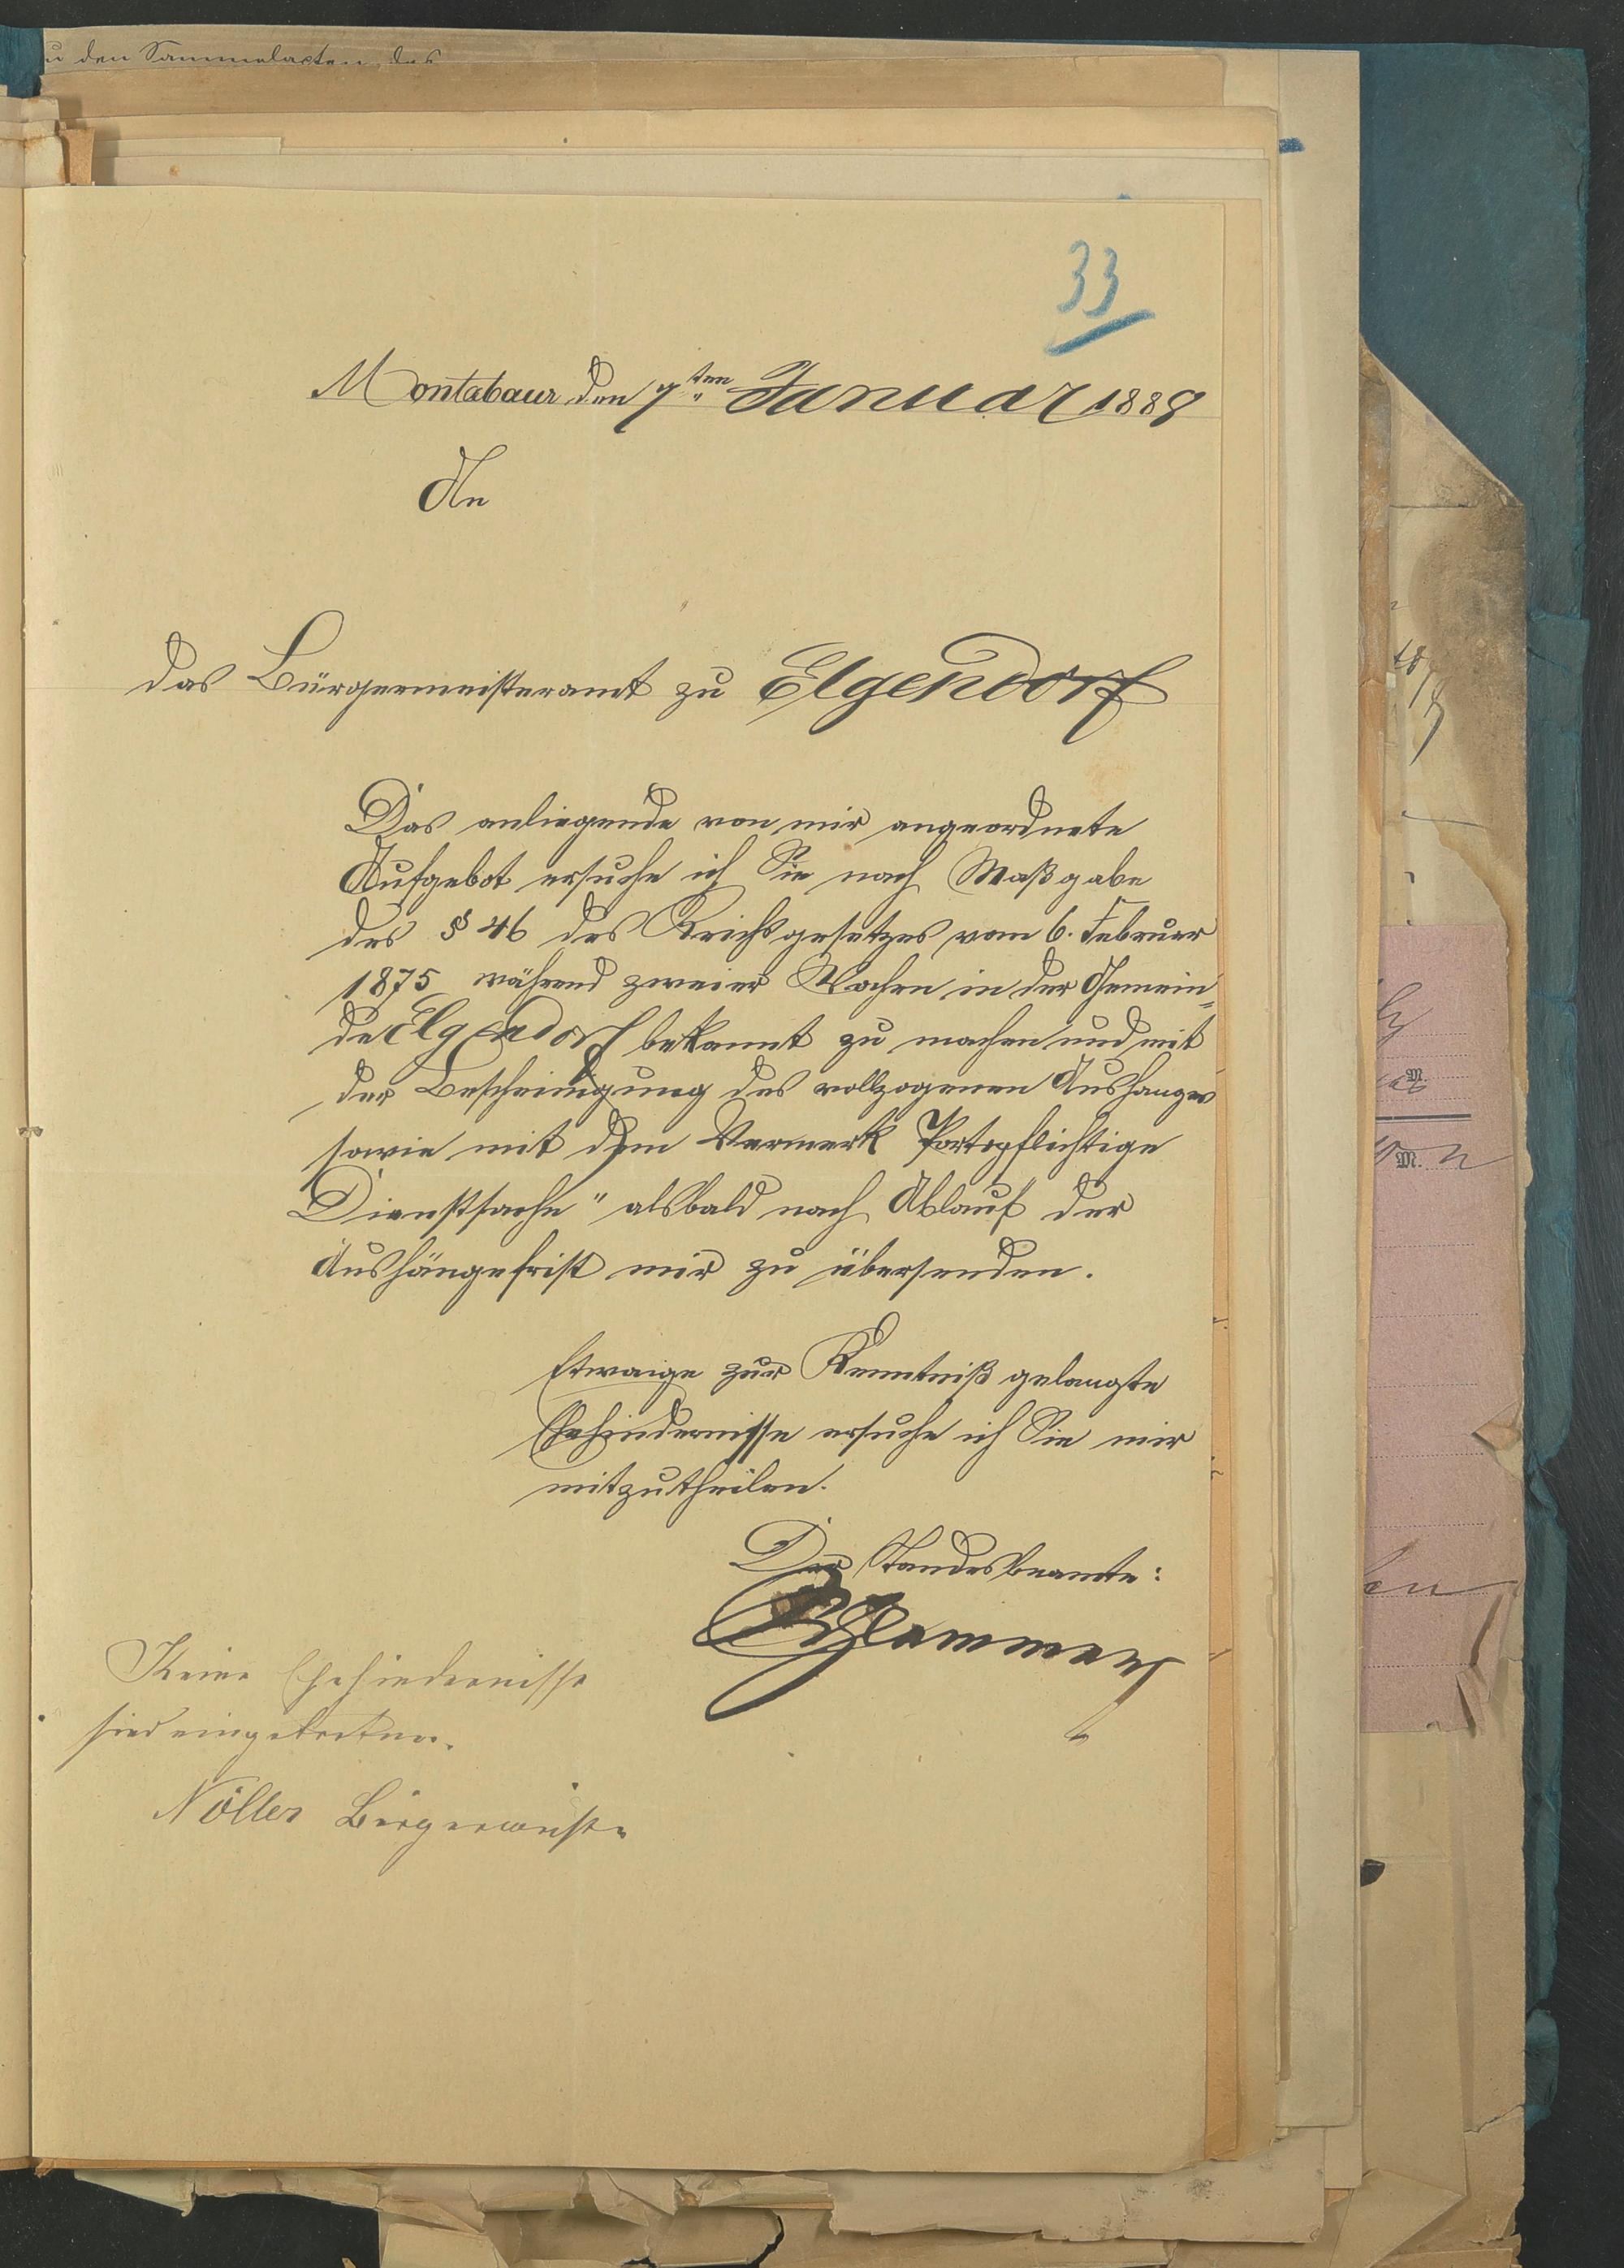 zu den Sammelacten des
33
Montabaur den 7ten Januar 1889
An
das Bürgermeisteramt zu Elgendorf
Das anliegende von mir angeordnete
Aufgebot ersuche ich Sie nach Maßgabe
des § 46 des Reichsgesetzes vom 6. Februar
1875 während zweier Wochen in der Gemein-
de Elgendorf bekannt zu machen und mit
der Bescheinigung des vollzogenen Aushanges
sowie mit dem Vermerk Portopflichtige
Dienstsache" alsbald nach Ablauf der
Aushängefrist mir zu übersenden.
Etwaige zur Kenntniß gelangte
Ehehindernisse ersuche ich Sie mir
mitzutheilen.
Der Standesbeamte:
Keine Ehehindernisse
sind eingetreten.
Nöller Bürgermeister